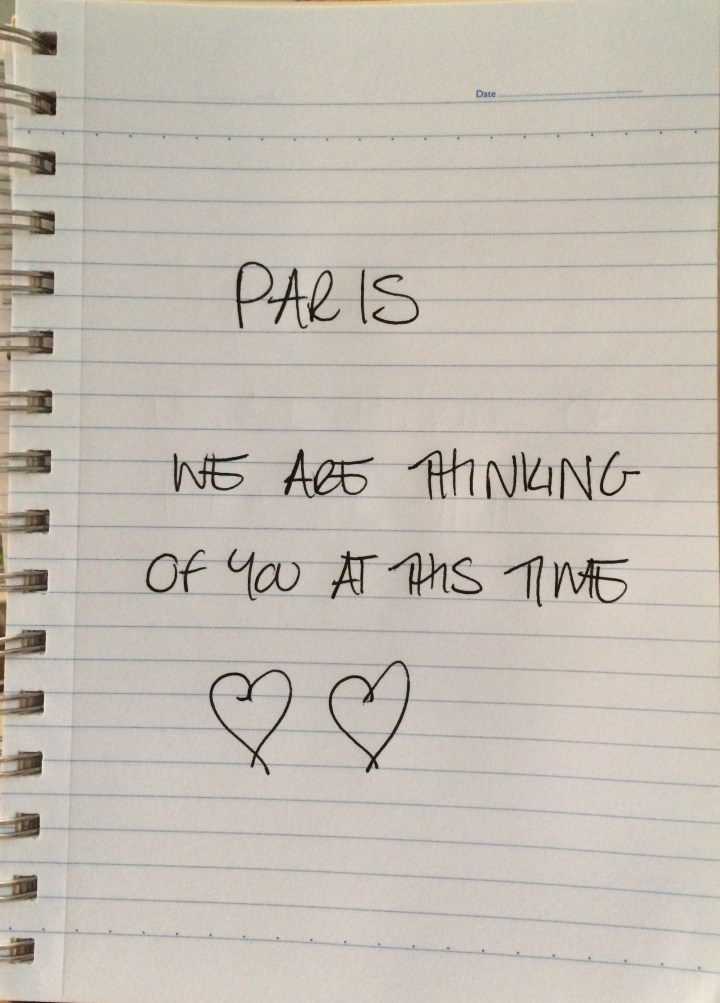 Date
PARIS
WE ARE THINKING
OF YOU AT THIS TIME